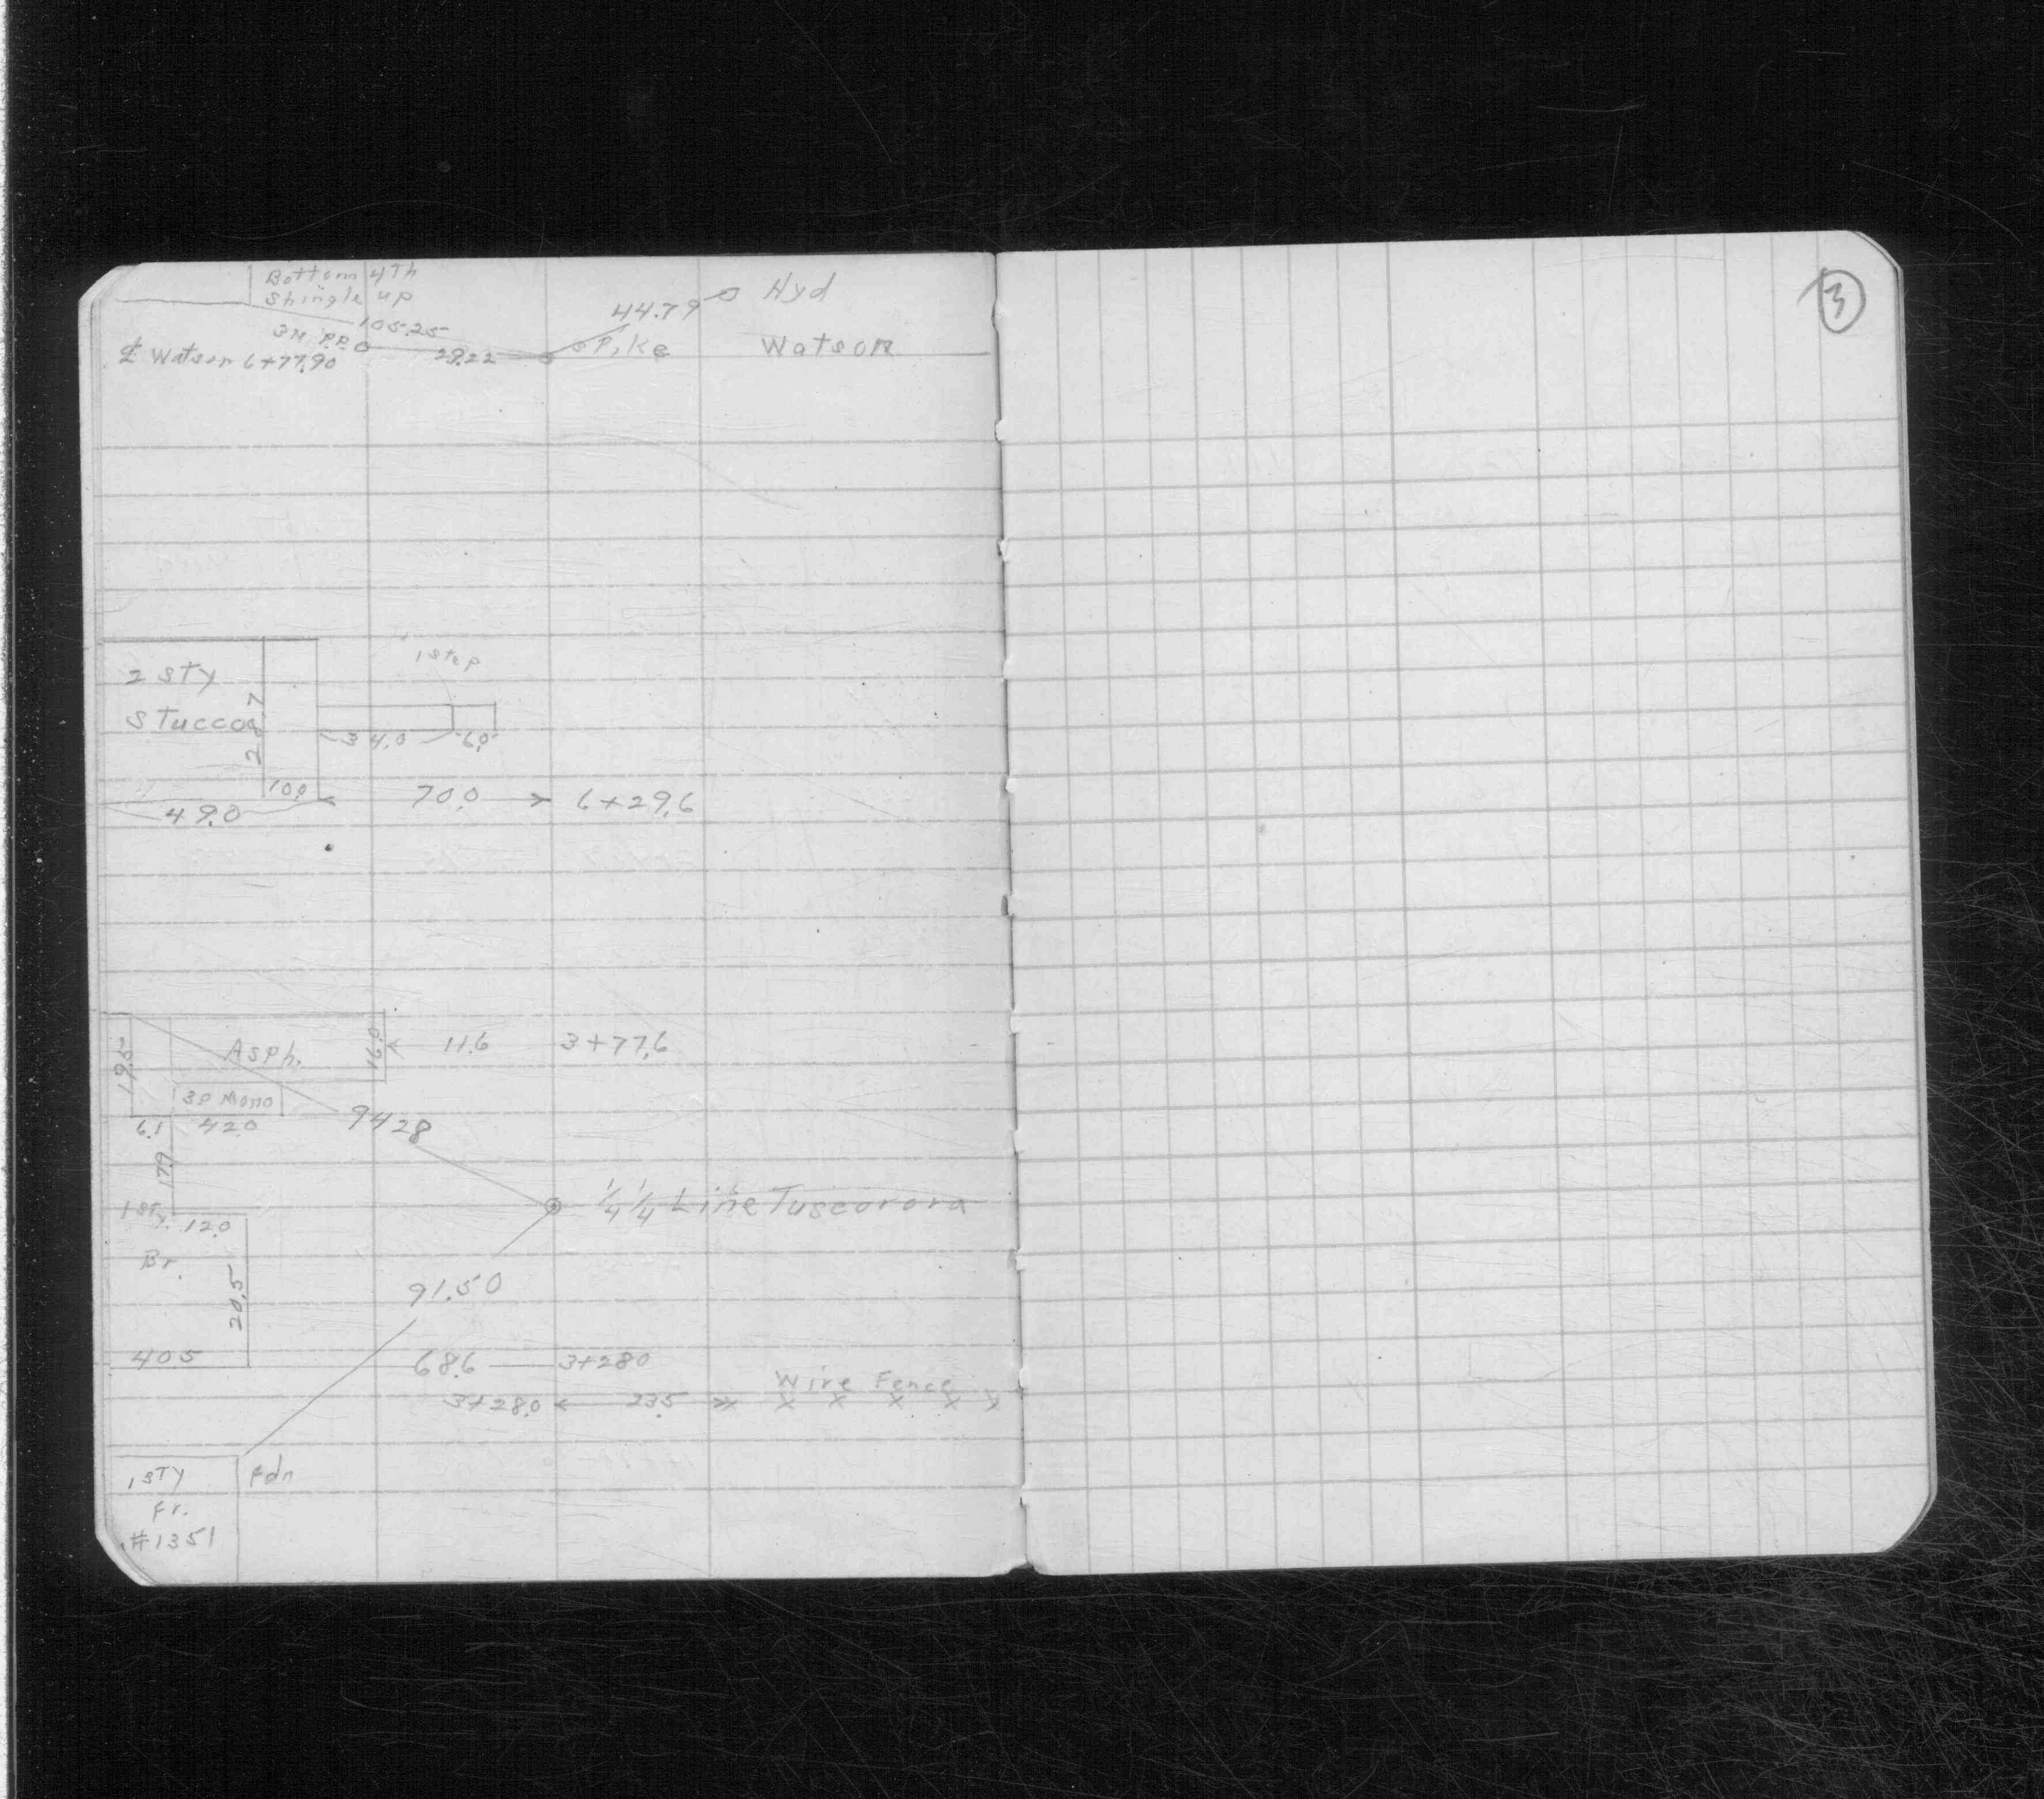 Bottom 4Th
Shingle up
105.25
3N PP.
44.79
Hyd
℄ Watson 6+77.90
29.22
SPike
Watson
1 step
2 STY
STucco
34.0
6.0
10.0
70.0
6+29.6
49.0
19.5
Asph.
16.0
11.6
3+77.6
Mono
6.1
42.0
94.28
17.9
1 STy.
12.0
1/4 1/4 Line Tuscorora
Br.
20.5
91.50
40.5
68.6
3+28.0
Wire Fence
3+28.0
23.5
x x x x x
1 STY
Fdn
Fr.
#1351
3